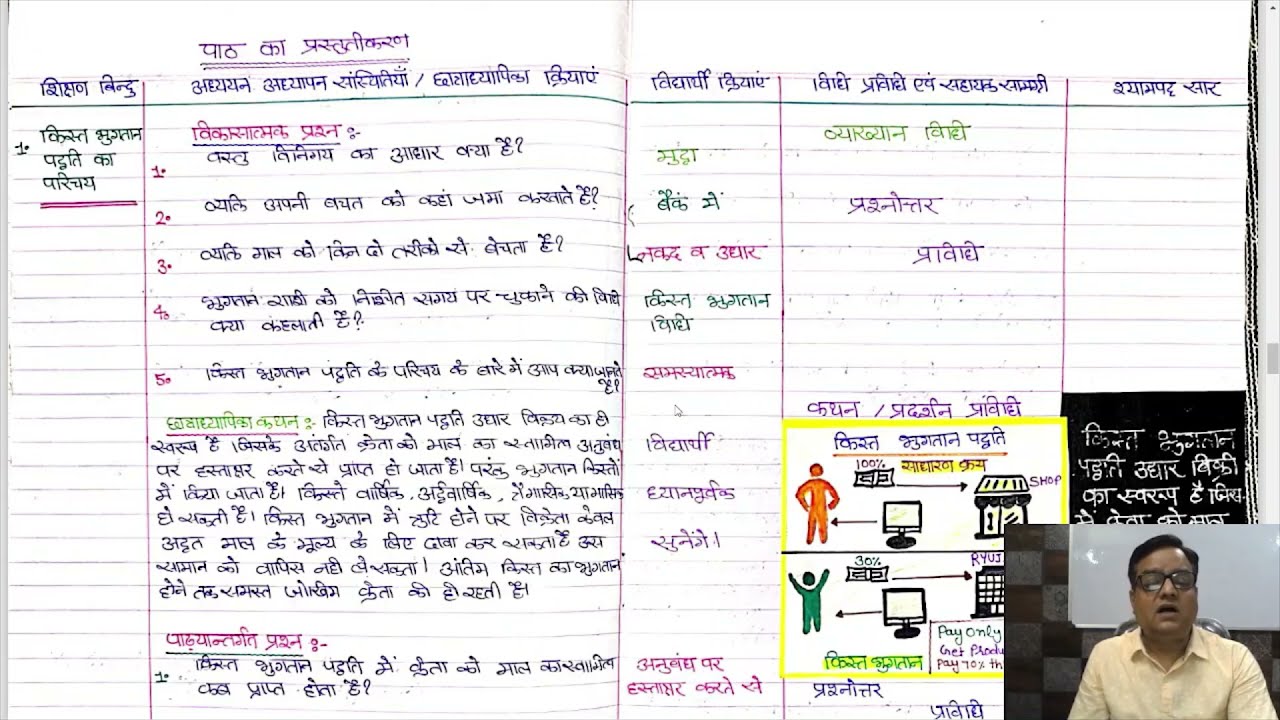 पाठ का प्रस्तुतीकरण
शिक्षण बिन्दु
अध्ययन अध्यापन संस्थितियाँ / छात्राध्यापिका क्रियाएं
विद्यार्थी क्रियाएं
विधि प्रविधि एवं सहायक सामग्री
श्यामपट्ट सार
1. किस्त भुगतान
पद्वति का
परिचय
विकासात्मक प्रश्न :-
1. वस्तु विनिमय का आधार क्या है?
2. व्यक्ति अपनी बचत को कहां जमा करवाते है?
3. व्यक्ति माल को किन दो तरीको से बेचता है?
4. भुगतान राशी को निश्चित समय पर चुकाने की विधि
क्या कहलाती है?
5. किस्त भुगतान पद्वति के परिचय के बारे में आप क्या जानते
है?
छात्राध्यापिका कथन :- किस्त भुगतान पद्वति उधार विक्रय का ही
स्वरूप है जिसके अंतर्गत क्रेता को माल का स्वामित्व अनुबंध
पर हस्ताक्षर करते से प्राप्त हो जाता है। परंतु भुगतान किस्तों
में किया जाता है। किस्ते वार्षिक, अर्द्ववार्षिक, त्रैमासिक या मासिक
हो सकती है। किस्त भुगतान में त्रुटि होने पर विक्रेता केवल
अदत माल के मूल्य के लिए दावा कर सकता है उस
सामान को वापिस नही ले सकता। अंतिम किस्त का भुगतान
होने तक समस्त जोखिम क्रेता की ही रहती है।
पाठ्यान्तर्गत प्रश्न :-
1. किस्त भुगतान पद्वति में क्रेता को माल का स्वामित्व
कब प्राप्त होता है?
मुद्रा
बैंक में
नकद व उधार
किस्त भुगतान
विधि
समस्यात्मक
विद्यार्थी
ध्यानपूर्वक
सुनेंगे।
अनुबंध पर
हस्ताक्षर करते से
व्याख्यान विधि
प्रश्नोत्तर
प्राविधि
कथन / प्रदर्शन प्राविधि
किस्त भुगतान पद्वति
100% साधारण क्रय
SHOP
30%
किस्त भुगतान
Pay Only
Get Produ
Pay 70% th
प्रश्नोत्तर
प्राविधि
किस्त भुगतान
पद्वति उधार बिक्री
का स्वरूप है जिस